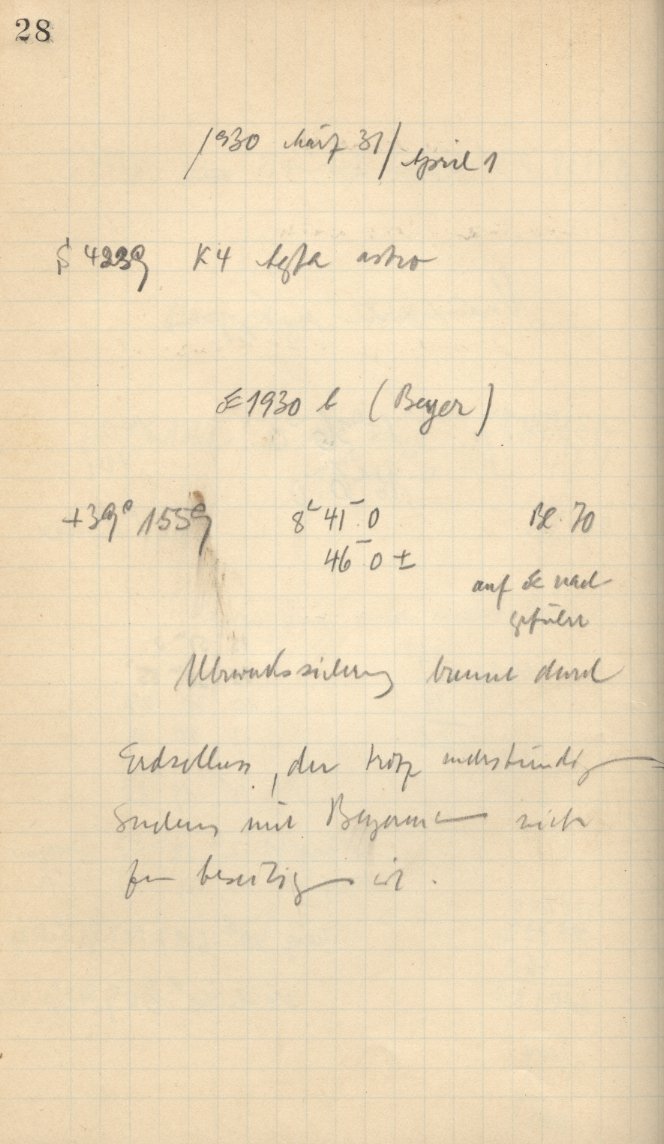 28
1930 März 31/April 1
S 4239 K4 Agfa astro
☄ 1930 b (Beyer)
+39° 1559 8h 41m 0 Bl. 70
46m 0 ±
auf ☄ nach
geführt
Uhrwerkssicherung brennt durch
Erdschluss, der trotz mehrstündigen
Suchens mit Beyermann nicht
zu beseitigen ist.